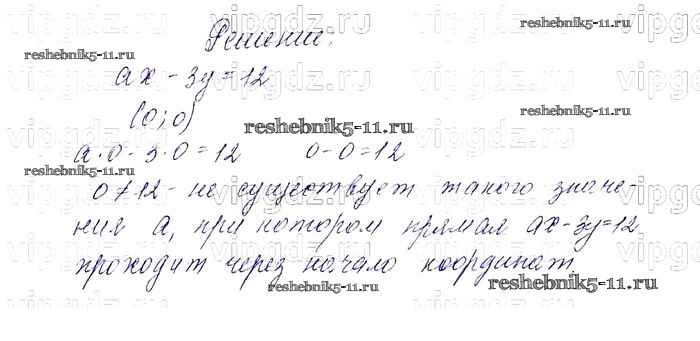 Решение:
reshebnik5-11.ru
reshebnik5-11.ru
ax - 3y = 12
(0; 0)
reshebnik5-11.ru
reshebnik5-11.ru
a·0 - 3·0 = 12 0 - 0 = 12
reshebnik5-11.ru
0 ≠ 12 - не существует такого значе-
ния a, при котором прямая ax - 3y = 12
проходит через начало координат.
reshebnik5-11.ru
reshebnik5-11.ru
vipgdz.ru